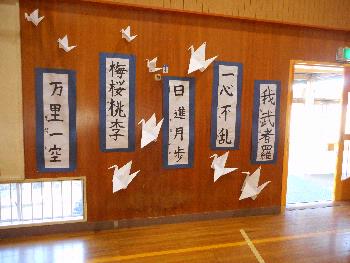 我武者羅
一心不乱
日進月歩
梅桜桃李
万里一空